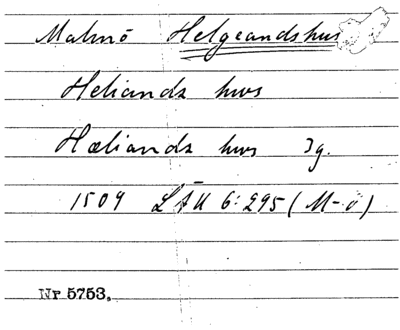 Malmö Helgeandshus
Heliands hws
Hæliands hws 3g.
1509 LÄU 6:295 (M-ö)
Nr 5753.